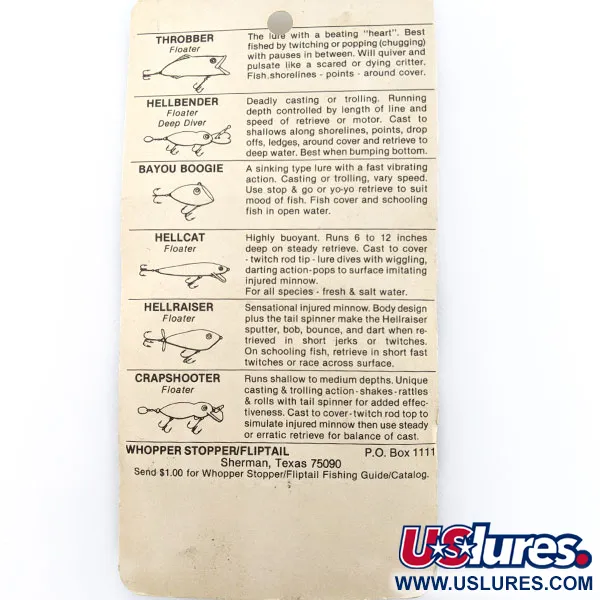 THROBBER
Floater
The lure with a beating "heart". Best
fished by twitching or popping (chugging)
with pauses in between. Will quiver and
pulsate like a scared or dying critter.
Fish shorelines - points - around cover.
HELLBENDER
Floater
Deep Diver
Deadly casting or trolling. Running
depth controlled by length of line and
speed of retrieve or motor. Cast to
shallows along shorelines, points, drop
offs, ledges, around cover and retrieve to
deep water. Best when bumping bottom.
BAYOU BOOGIE
A sinking type lure with a fast vibrating
action. Casting or trolling, vary speed.
Use stop & go or yo-yo retrieve to suit
mood of fish. Fish cover and schooling
fish in open water.
HELLCAT
Floater
Highly buoyant. Runs 6 to 12 inches
deep on steady retrieve. Cast to cover
- twitch rod tip - lure dives with wiggling,
darting action-pops to surface imitating
injured minnow.
For all species - fresh & salt water.
HELLRAISER
Floater
Sensational injured minnow. Body design
plus the tail spinner make the Hellraiser
sputter, bob, bounce, and dart when re-
trieved in short jerks or twitches.
On schooling fish, retrieve in short fast
twitches or race across surface.
CRAPSHOOTER
Floater
Runs shallow to medium depths. Unique
casting & trolling action - shakes - rattles
& rolls with tail spinner for added effec-
tiveness. Cast to cover - twitch rod top to
simulate injured minnow then use steady
or erratic retrieve for balance of cast.
WHOPPER STOPPER/FLIPTAIL P.O. Box 1111
Sherman, Texas 75090
Send $1.00 for Whopper Stopper/Fliptail Fishing Guide/Catalog.
USlures.
WWW.USLURES.COM